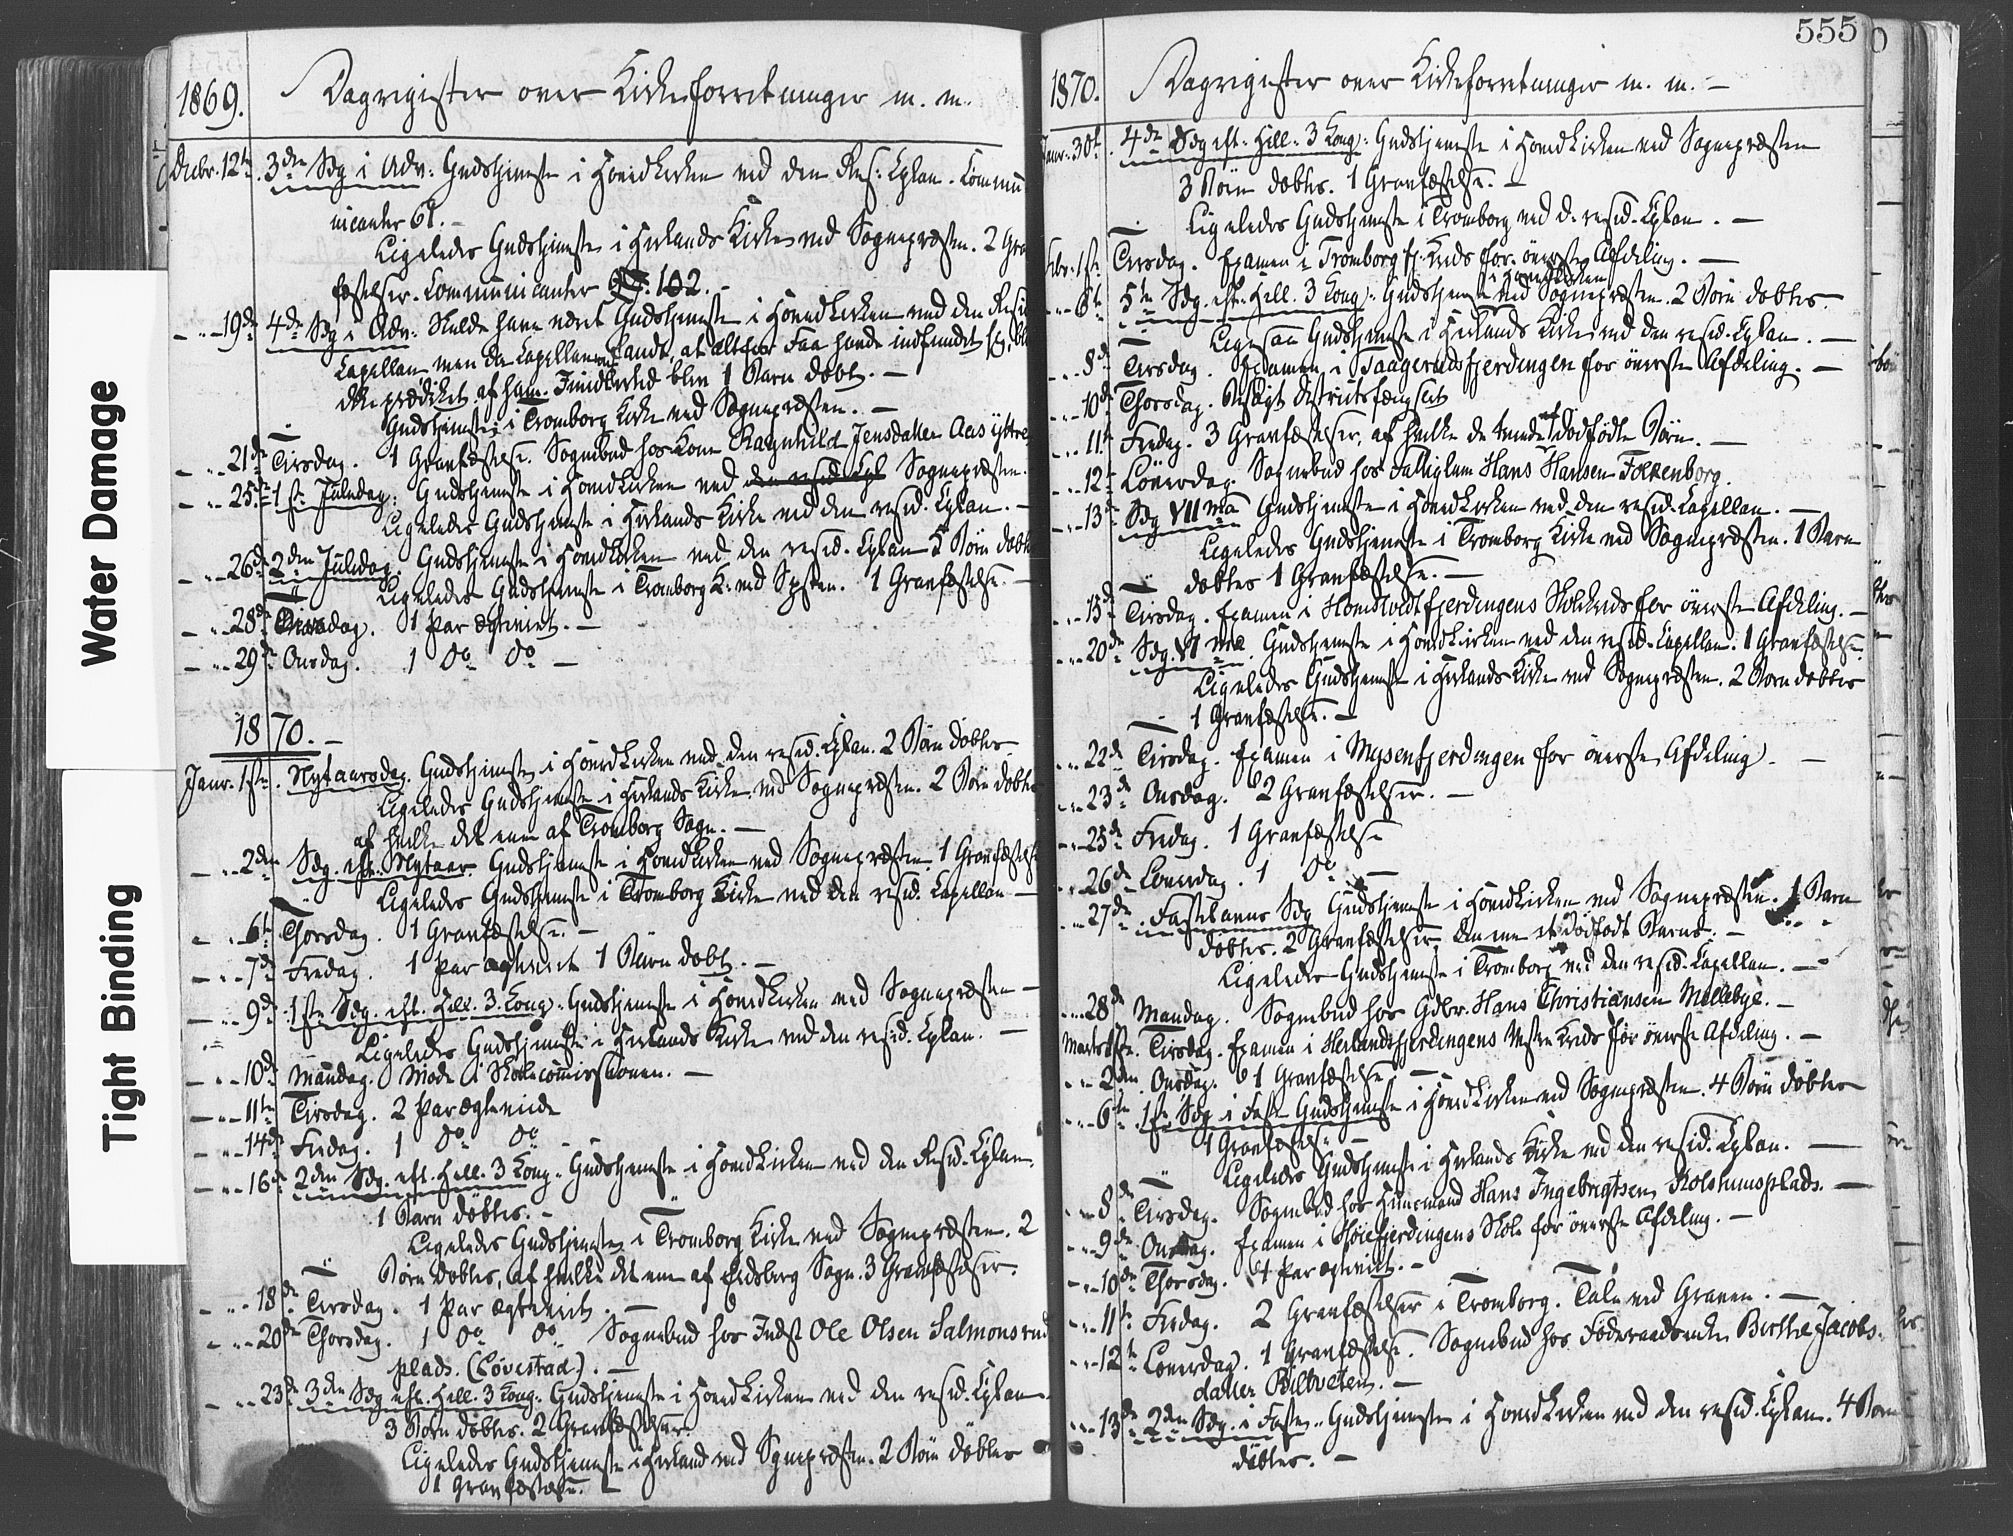 Water Damage
Tight Binding
1869. Dagregister over Kirkeforretninger m. m.
Decbr. 12te. 3die Sdg i Adv: Gudstjeneste i Hovedkirken ved den Res: Cplan. Commu
nicanter 61. –
Ligeledes Gudstjeneste i Herlands Kirke ved Sognepræsten. 2 Gra
fæstelser. Communicanter 102. –
– " – 19de 4de Sdg i Adv: Skulde have været Gudstjeneste i Hovedkirken ved den Resid
Capellan men da Capellanen fandt, at altfor Faa havde indfundet sig, blev
ikke prædiket af ham. Imidlertid blev 1 Barn døbt. –
Gudstjeneste i Tromborg Kirke ved Sognepræsten. –
– " – 21de Tirsdag. 1 Gravfæstelse. Sognebud hos Kone Ragnhild Jensdatter Aas ÿttre
– " – 25de 1ste Juledag: Gudstjeneste i Hovedkirken ved den resid Cpl Sognepræsten.
Ligeledes Gudstjeneste i Herlands Kirke ved den resid. Cplan. –
– " – 26de 2den Juledag. Gudstjeneste i Hovedkirken ved den resid. Cplan 5 Børn døbte
Ligeledes Gudstjeneste i Tromborg K: ved Spsten. 1 Gravfæstelse. –
– " – 28de Tirsdag. 1 Par ægteviet. –
– " – 29de Onsdag. 1 Do Do –
1870. –
Janr. 1ste. Nytaarsdag. Gudstjeneste i Hovedkirken ved den resid. Cplan. 2 Børn døbtes
Ligeledes Gudstjeneste i Herlands Kirke ved Sognepræsten. 2 Børn døbtes
af hvilke det ene af Tromborg Sogn. –
– " – 2den Sdg. eft. Nytaar. Gudstjeneste i Hovedkirken ved Sognepræsten 1 Gravfæstelse
Ligeledes Gudstjeneste i Tromborg Kirke ved den resid. Capellan –
– " – 6te Thorsdag. 1 Gravfæstelse. –
– " – 7de Fredag. 1 Par ægteviet 1 Barn døbt. –
– " – 9de 1ste Sdg. eft. Hell. 3 Kong: Gudstjeneste i Hovedkirken ved Sognepræsten –
Ligeledes Gudstjeneste i Herlands Kirke ved den resid. Cplan. –
– " – 10de Mandag. Møde i Skolecommissionen. –
– " – 11te Tirsdag. 2 Par ægteviede
– " – 14de Fredag. 1 Do Do –
– " – 16de 2den Sdg. eft. Hell. 3 Kong. Gudstjeneste i Hovedkirken ved den Resid. Cplan.
1 Barn døbtes. –
Ligeledes Gudstjeneste i Tromborg Kirke ved Sognepræsten. 2
Børn døbtes, af hvilke det ene af Eidsberg Sogn. 3 Gravfæstelser.
– " – 18de Tirsdag. 1 Par ægteviet. –
– " – 20de Thorsdag. 1 Do Do Sognebud hos Indst Ole Olsen Salmonsrud
plads. (Løvestad). –
– " – 23de 3die Sdg eft. Hell. 3 Kong: Gudstjeneste i Hovedkirken ved den resid. Cplan
3 Børn døbtes. 2 Gravfæstelser.
Ligeledes Gudstjeneste i Herland ved Sgnepræsten. 2 Børn døbtes
1 Gravfæstelse. –
555
1870. Dagregister over Kirkeforretninger m. m. –
Janr. 30te. 4de Sdg eft. Hell. 3 Kong: Gudstjeneste i Hovedkirken ved Sognepræsten
3 Børn døbtes. 1 Gravfæstelse. –
Ligeledes Gudstjeneste i Tromborg ved d. resid. Cplan. –
Febr. 1ste. Tirsdag. Examen i Tromborg fj. Kreds for øverste Afdeling. –
– " – 6te 5te Sdg. eft. Hell. 3 Kong: Gudstjeneste i Hovedkirken ved Sognepræsten. 2 Børn døbtes.
Ligesaa Gudstjeneste i Herlands Kirke ved den resid. Cplan. –
– " – 8de Tirsdag. Examen i Taagerudsfjerdingen for øverste Afdeling. –
– " – 10de Thorsdag. Besøgt Districtsfængslet
– " – 11te Fredag. 3 Gravfæstelser, af hvilke de tvende dødfødte Børn. –
– " – 12te Løverdag. Sognebud hos Fattiglem Hans Hansen Folkenborg.
– " – 13de Sdg VIIma Gudstjeneste i Hovedkirken ved den resid. Capellan. –
Ligeledes Gudstjeneste i Tromborg Kirke ved Sognepræsten. 1 Barn
døbtes 1 Gravfæstelse. –
– " – 15de Tirsdag. Examen i Homstvedtfjerdingens Skolekreds for øverste Afdeling. –
– " – 20de Sdg. VI ma. Gudstjeneste i Hovedkirken ved den resid. Capellan. 1 Gravfæstelse
Ligeledes Gudstjeneste i Herlands Kirke ved Sognepræsten. 2 Børn døbtes
1 Gravfæstelse. –
– " – 22de Tirsdag. Examen i Mysenfjerdingen for øverste Afdeling. –
– " – 23de Onsdag. 2 Gravfæstelser. –
– " – 25de Fredag. 1 Gravfæstelse
– " – 26de Løverdag. 1 Do –
– " – 27de Fastelavns Sdg Gudstjeneste i Hovedkirken ved Sognepræsten. 1 Barn
døbtes. 2 Gravfæstelser, den ene et dødfødt Barns. –
Ligeledes Gudstjeneste i Tromborg ved den resid. Capellan. –
– " – 28de Mandag. Sognebud hos Gdbr. Hans Christiansen Mellebye. –
Marts 1ste. Tirsdag. Examen i Herlandsfjerdingens Vestre Kreds for øverste Afdeling. –
– " – 2den Onsdag. 1 Gravfæstelse. –
– " – 6te 1ste Sdg i Faste Gudstjeneste i Hovedkirken ved Sognepræsten. 4 Børn døbtes
1 Gravfæstelse –
Ligeledes Gudstjeneste i Herlands Kirke ved den resid. Cplan. –
– " – 8de Tirsdag. Sognebud hos Huusmand Hans Ingebrigtsen, Kolstumsplads. –
– " – 9de Onsdag. Examen i Høiefjerdingens Skole for øverste Afdeling. –
– " – 10de Thorsdag. 1 Par ægteviet. –
– " – 11te Fredag. 2 Gravfæstelser i Tromborg. Tale ved Graven. –
– " – 12te Løverdag. 1 Gravfæstelse. Sognebud hos Føderaadsenke Berthe Jacobs-
datter Biltveten. –
– " – 13de 2den Sdg. i Faste. Gudstjeneste i Hovedkirken ved den resid. Cplan. 4 Børn
døbtes. –